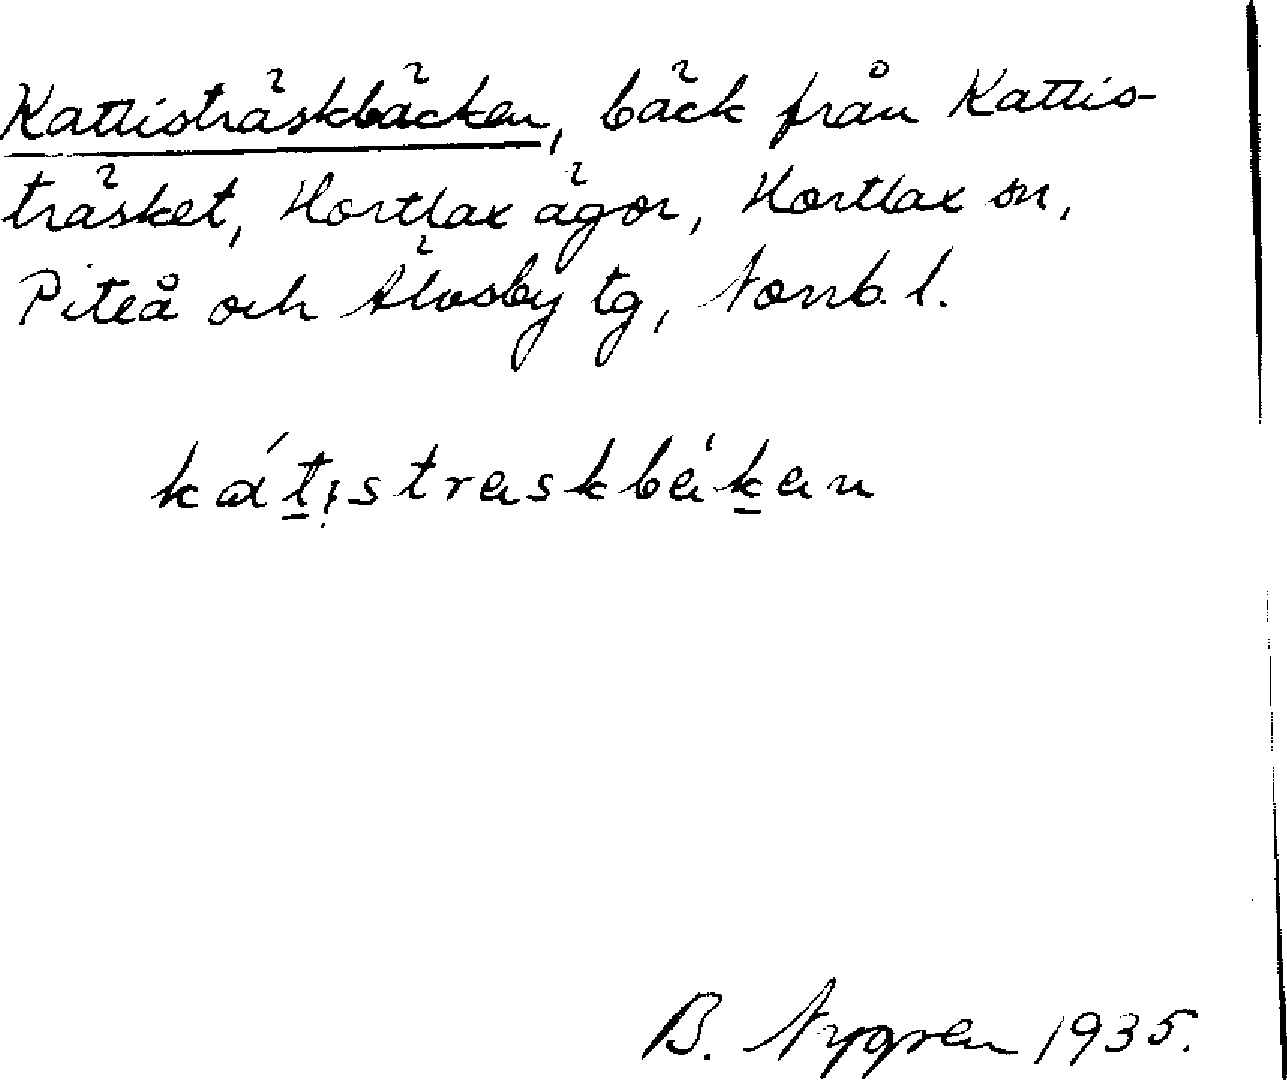 Kattisträskbäcken, bäck från Kattis-
träsket, Hortlax ägor, Hortlax sn,
Piteå och Älvsby tg, Norrb. l.
kát̠ı̣stræskbǽk̠en
B. Nygren 1935.